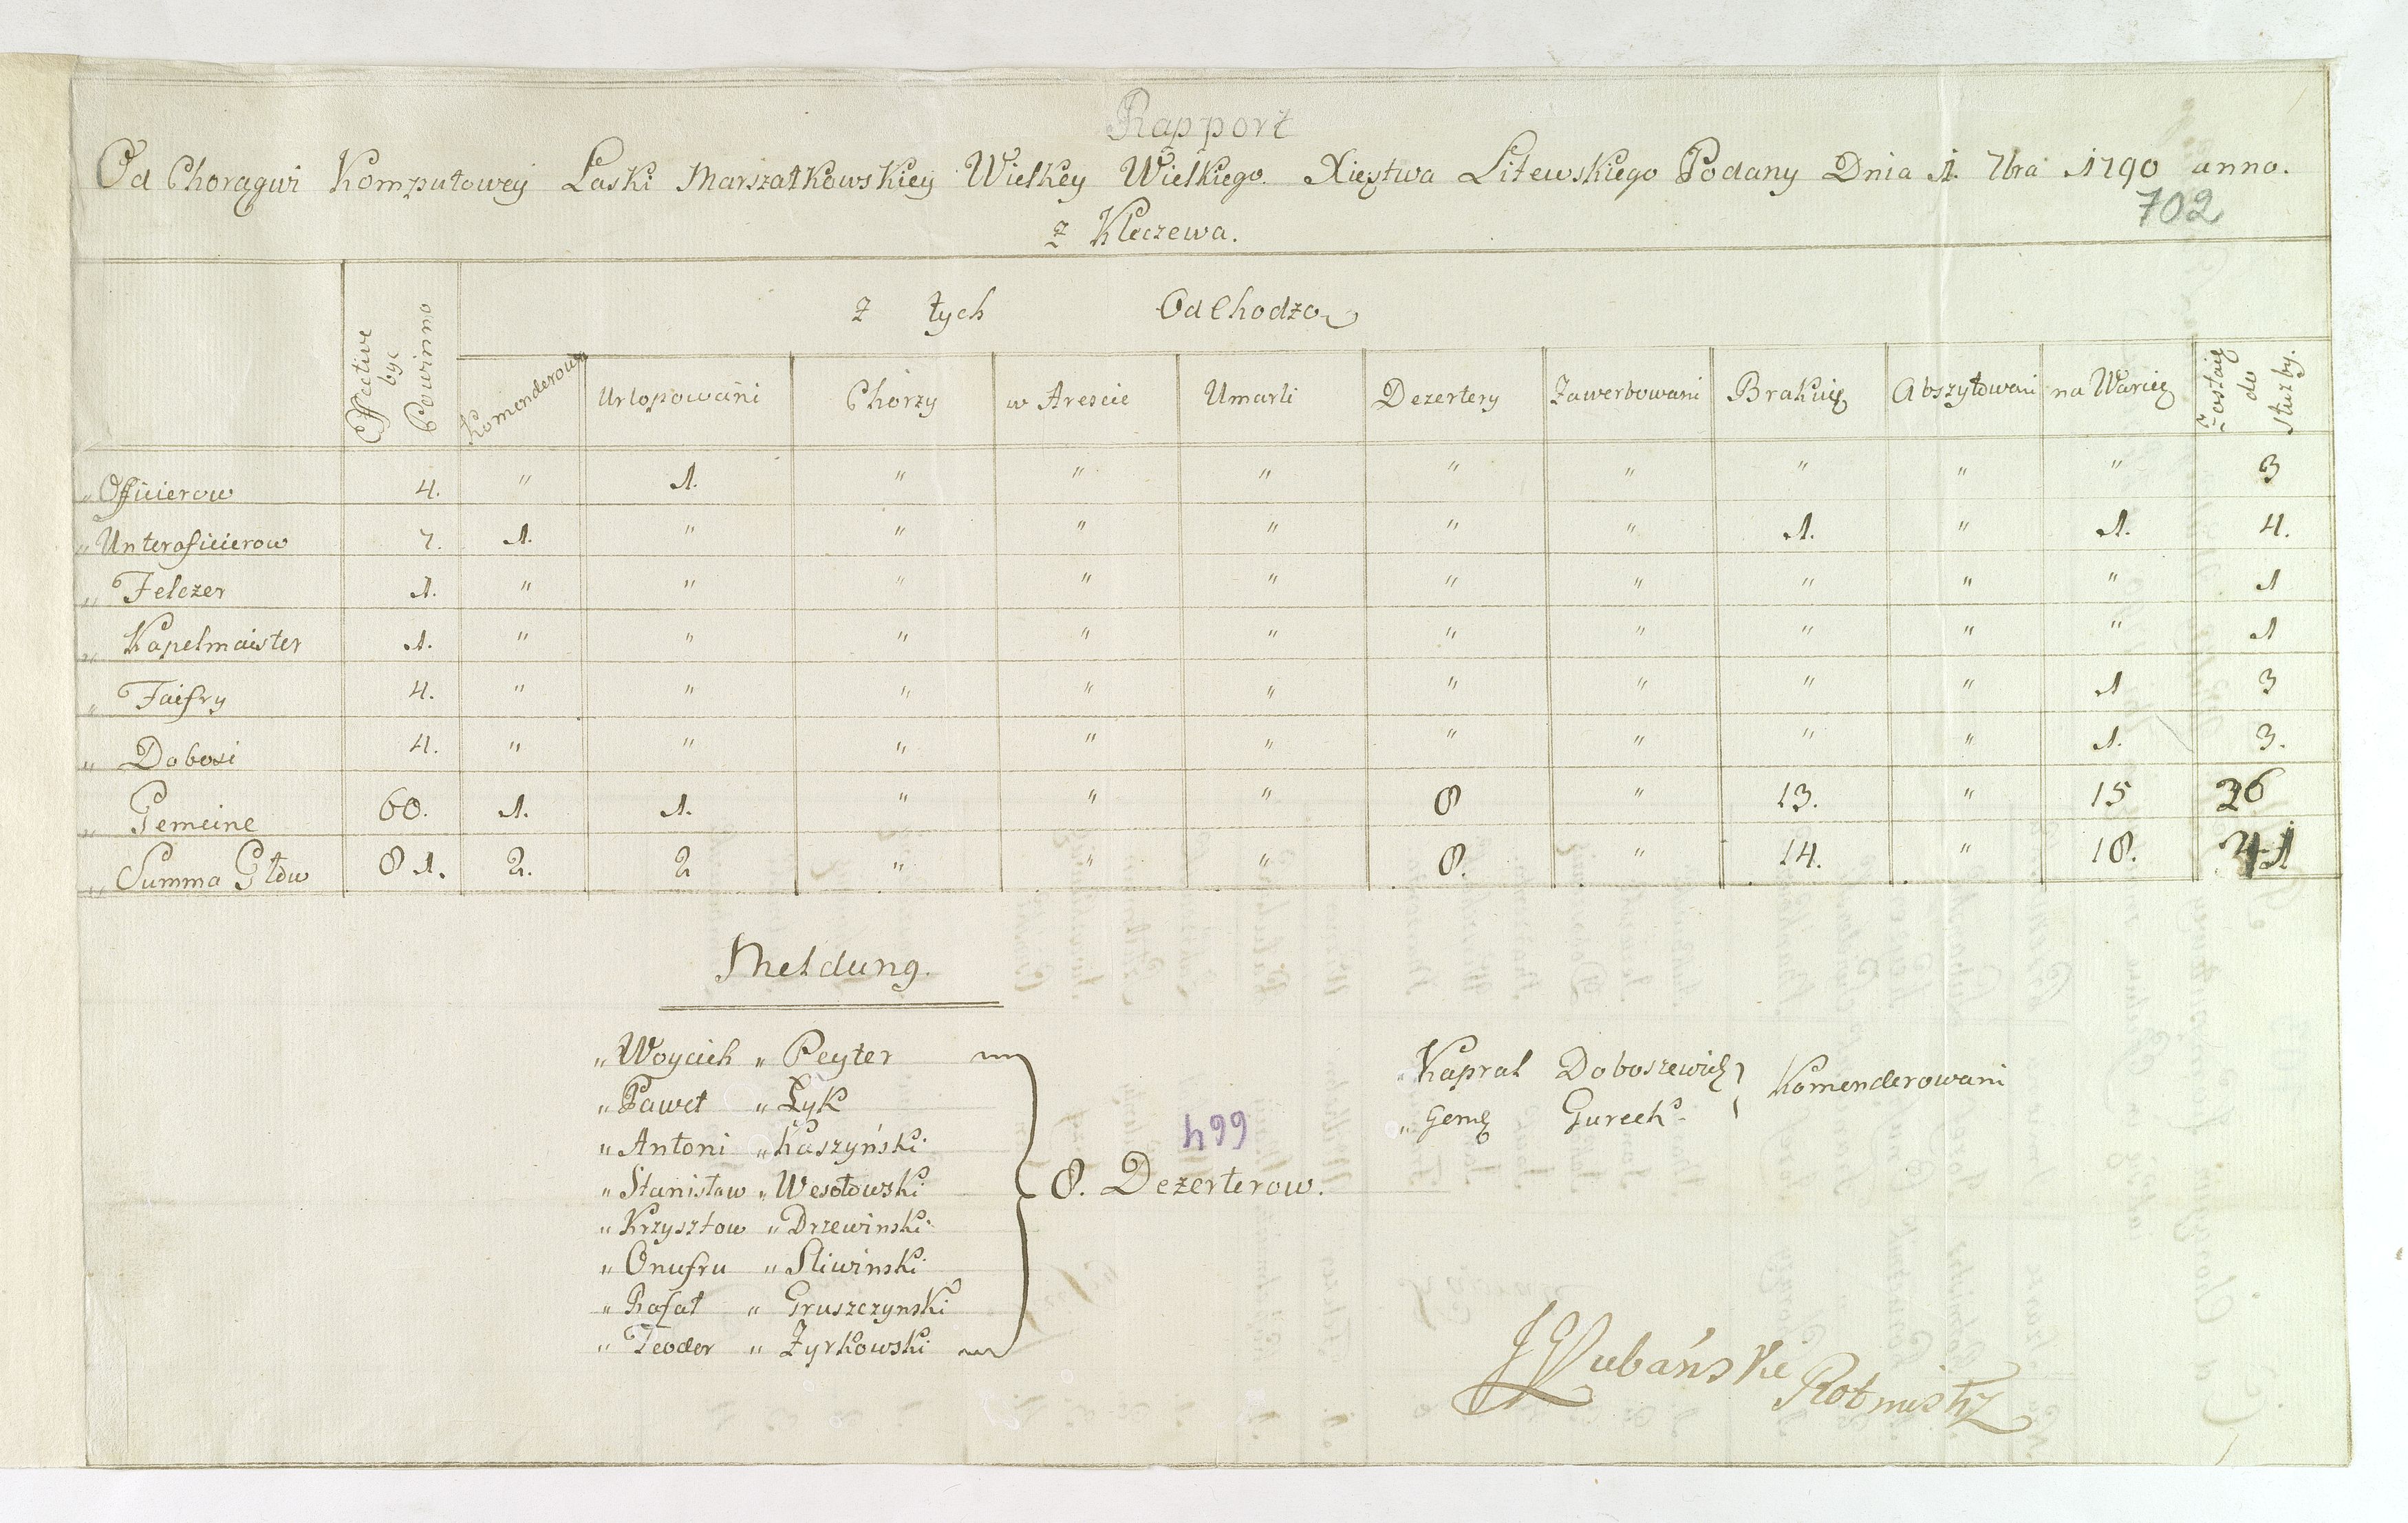 Rapport
Od Chorągwi Komputowey Laski Marszałkowskiey Wielkey Wielkiego Xięstwa Litewskiego Podany Dnia 1. 7bra 1790 anno.
702
z Kleczewa.
Effective być Powinno
z tych Odchodzą
Komenderowa Urlopowani Chorzy w Areście Umarli Dezertery Zawerbowani Brakuię Abszytowani na Warcię Zostaię do służby.
" Officierow 4. " 1. " " " " " " " " 3
" Unteroficierow 7. 1. " " " " " " 1. " 1. 4.
" Felczer 1. " " " " " " " " " " 1
" Kapelmaister 1. " " " " " " " " " " 1
" Faifry 4. " " " " " " " " " 1 3
" Dobosi 4. " " " " " " " " " 1. 3.
" Gemeine 60. 1. 1. " " " 8 " 13. " 15 26
" Summa Głów 81. 2. 2 " " " 8. " 14. " 18. 41
Meldung.
" Woyciech " Peyter
" Paweł " Łyk
" Antoni " Kaszyński
" Stanisław " Wesołowski
" Krzysztow " Drzewinski
" Onufru " Sliwinski
" Rafał " Gruszczynski
" Teodor " Zyrkowski
664
8. Dezerterow.
" Kapral Doboszewicz Komenderowani
" Gem Gurecki
Łubański Rotmistz